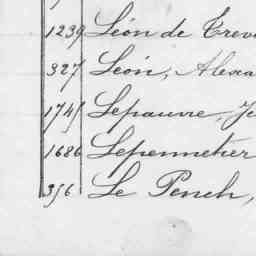 1239 Léon de Trev
327 Léon, Alexa
1745 Lepauvre, Je
1686 Lepennetier
356 Le Pench,